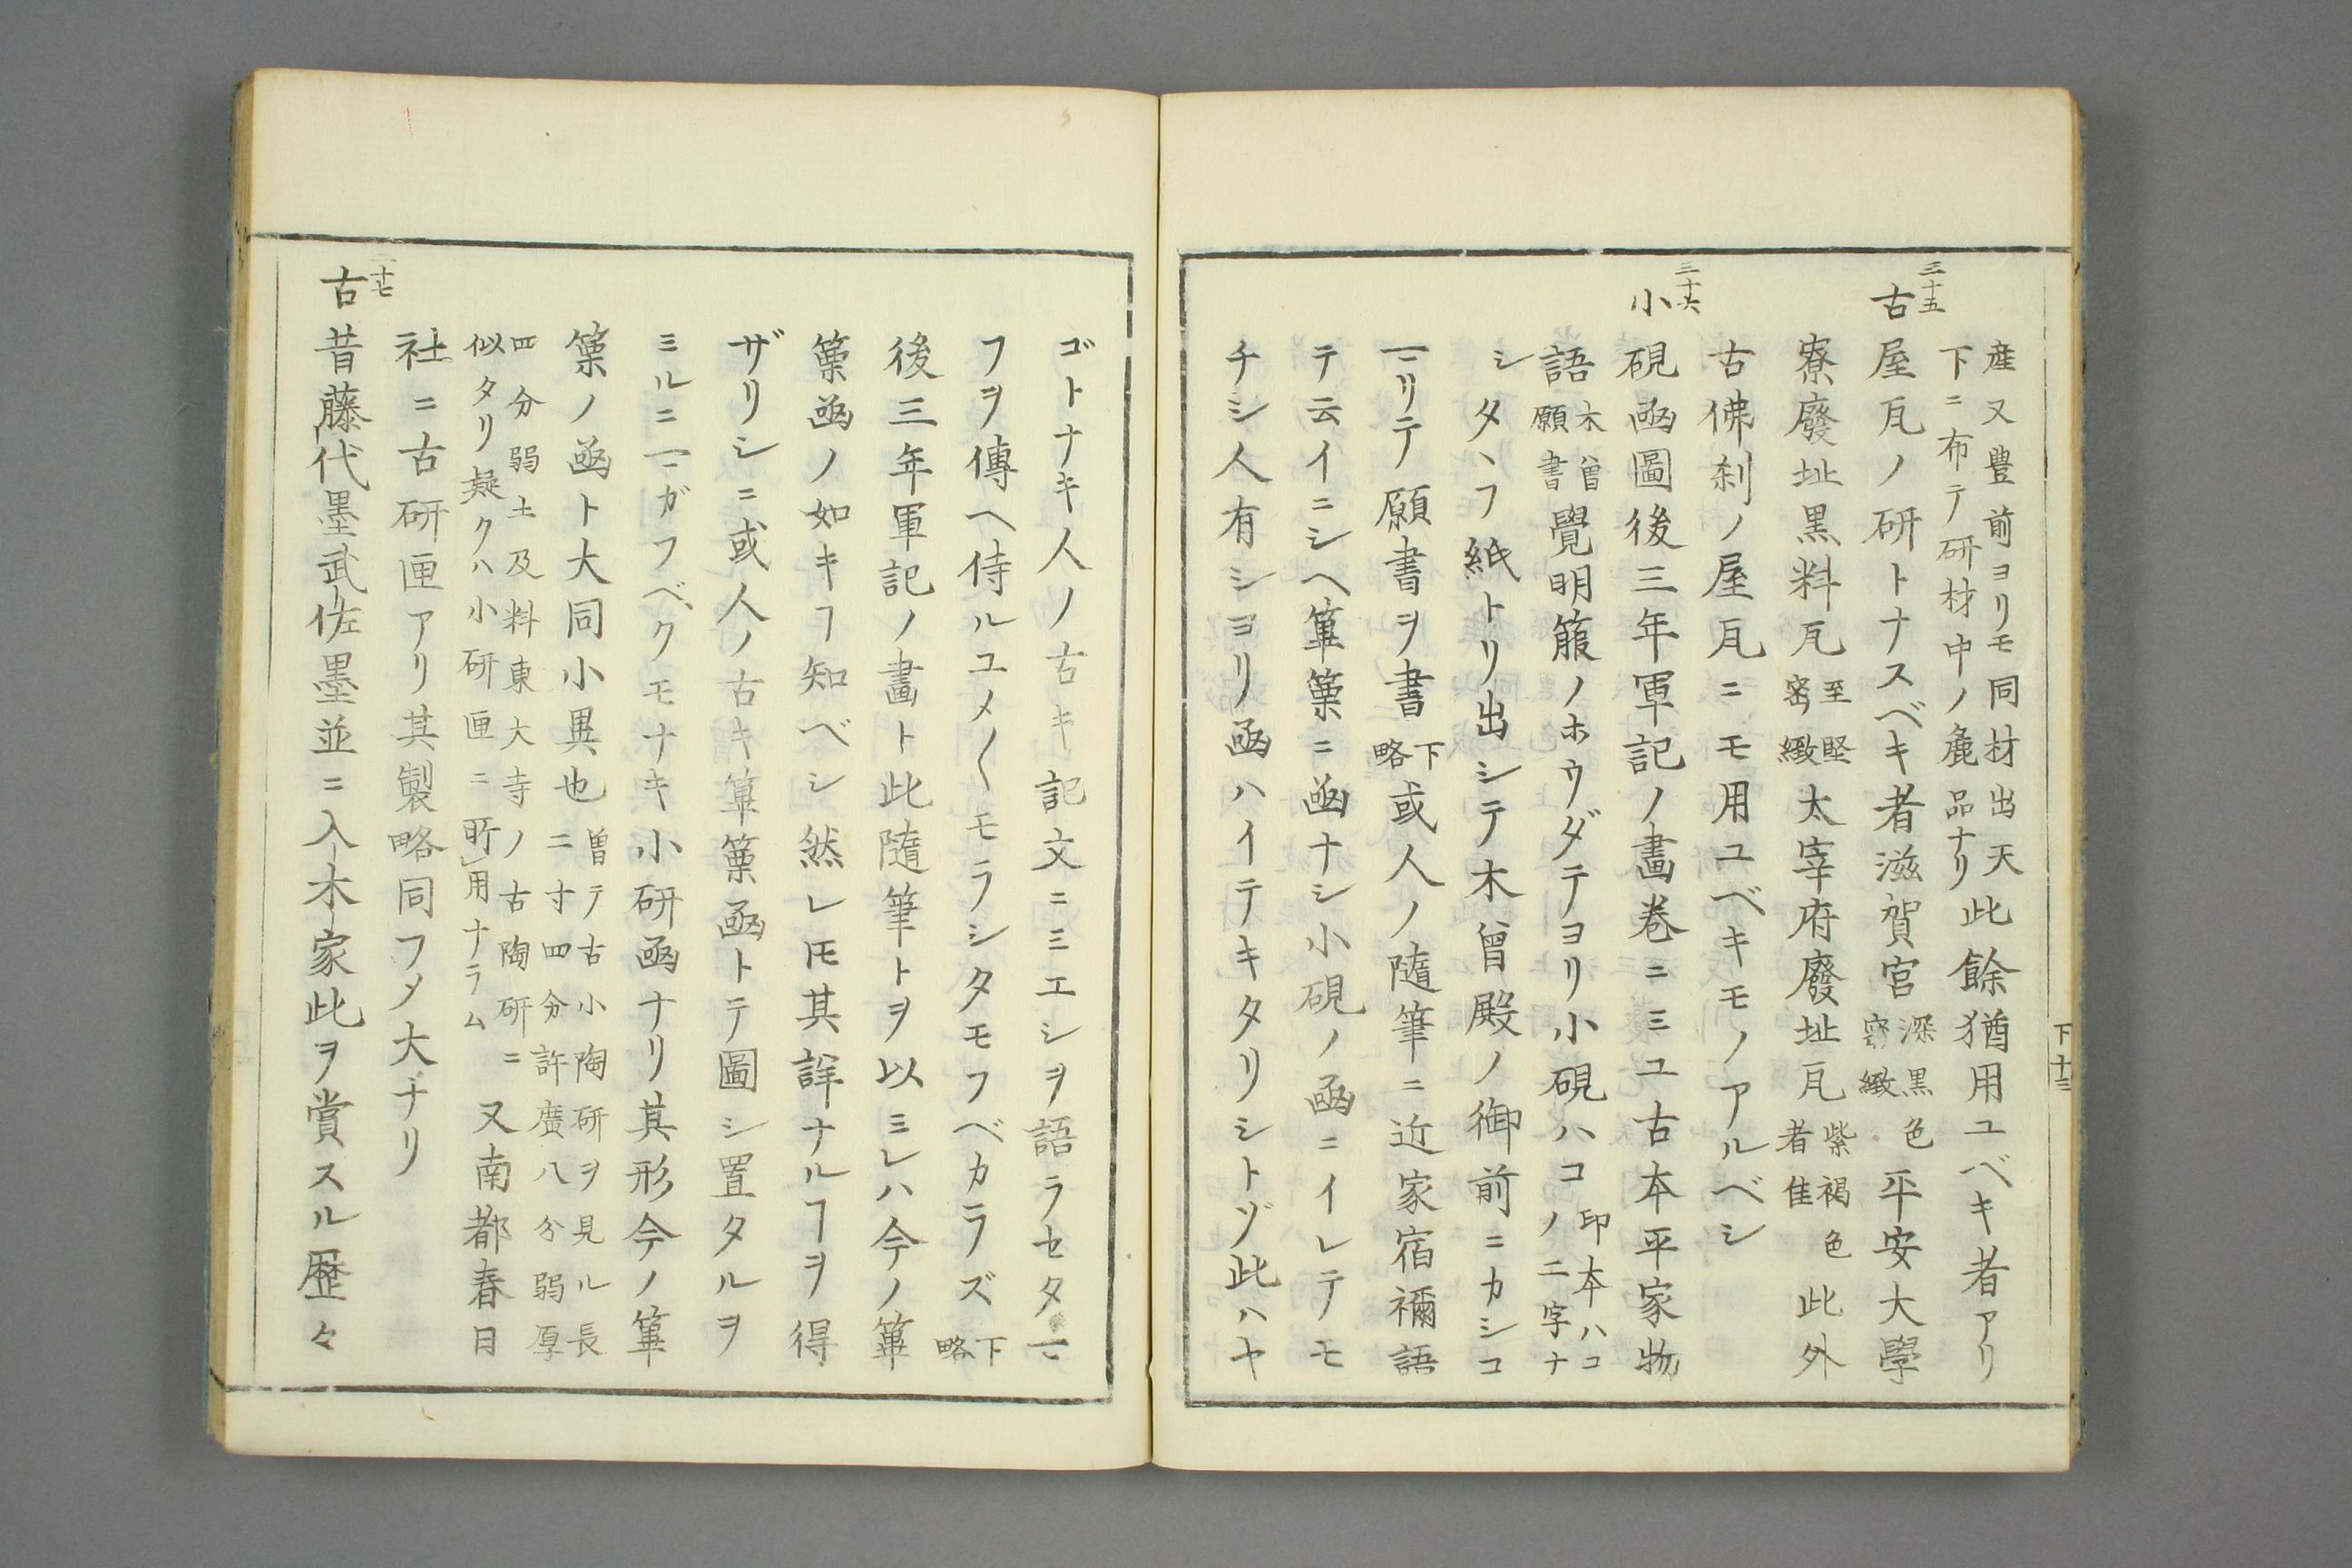 産又豊前ヨリモ同材出天
下ニ布テ研材中ノ麁品ナリ
此餘猶用ユベキ者アリ
三十五
古屋瓦ノ研トナスベキ者滋賀宮
深黒色
密緻
平安大學
寮廢址黒料瓦
至堅
密緻
太宰府廢址瓦
紫褐色
者佳
此外
古佛刹ノ屋瓦ニモ用ユベキモノアルベシ
三十六
小硯凾圖後三年軍記ノ畫巻ニミユ古本平家物
語
木曽
願書
覺明箙ノホウダテヨリ小硯ハコ
印本ハコ
ノ二字ナ
シ
タヽフ紙トリ出シテ木曾殿ノ御前ニカシコ
マリテ願書ヲ書
下
略
或人ノ隨筆ニ近家宿禰語
テ云イニシヘ篳篥ニ凾ナシ小硯ノ凾ニイレテモ
チシ人有シヨリ凾ハイテキタリシトゾ此ハヤ
下十三
ゴトナキ人ノ古キ記文ニミエシヲ語ラセタマ
フヲ傳ヘ侍ルユメ〱モラシタモフベカラズ
下
略
後三年軍記ノ畫ト此隨筆トヲ以ミレハ今ノ篳
篥凾ノ如キヿ知ベシ然レ𪜈其詳ナルヿヲ得
ザリシニ或人ノ古キ篳篥凾トテ圖シ置タルヲ
ミルニマガフベクモナキ小研凾ナリ其形今ノ篳
篥ノ凾ト大同小異也
曽テ古小陶研ヲ見ル長
二寸四分許廣八分弱厚
四分弱土及料東大寺ノ古陶研ニ
似タリ疑クハ小研匣ニ所用ナラム
又南都春日
社ニ古研匣アリ其製略同フメ大ナリ
三十七
古昔藤代墨武佐墨並ニ入木家此ヲ賞スル歴々